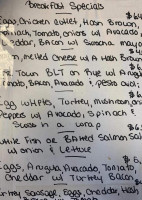 Breakfast Specials
Eggs, Chicken Cutlet, Hash Brown,
Spinach, Tomato, onions w/ Avocado
Cheddar, Bacon w/ Sriracha mayo
Melted Cheese w/ A Hash Brown
Town BLT on Rye w/ Arugula
Tomato, Bacon, Avocado, & pesto
Egg whites, Turkey, mushroom, onion
Peppers w/ Avocado, Spinach &
Swiss in a wrap
White Fish or Baked Salmon Salad
w/ onion & Lettuce
Eggs, Arugula, Avocado, Tomato,
Cheddar w/ Turkey Bacon
Turkey Sausage, Eggs, Cheddar, Hash